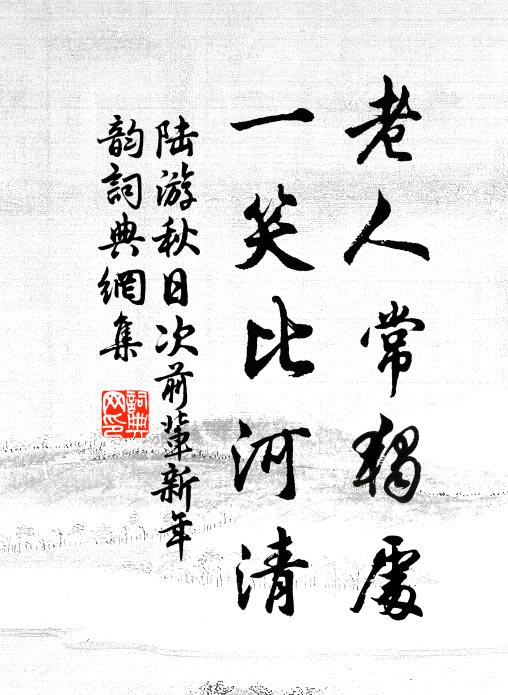 老人常独處
一笑比河清
陆游秋日次前輩新年
韵詞典網集
詞典网印